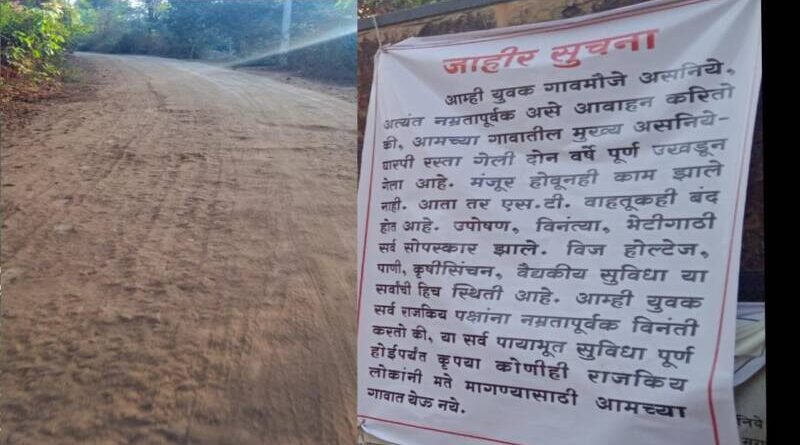 जाहीर सुचना
आम्ही युवक गावमौजे असनिये,
अत्यंत नम्रतापूर्वक असे आवाहन करितो
की, आमच्या गावातील मुख्य असनिये-
घारपी रस्ता गेली दोन वर्षे पूर्ण उखडून
गेला आहे. मंजूर होवूनही काम झाले
नाही. आता तर एस.टी. वाहतूकही बंद
होत आहे. उपोषण, विनंत्या, भेटीगाठी
सर्व सोपस्कार झाले. विज होल्टेज,
पाणी, कृषीसिंचन, वैद्यकीय सुविधा या
सर्वांची हिच स्थिती आहे. आम्ही युवक
सर्व राजकिय पक्षांना नम्रतापूर्वक विनंती
करतो की, या सर्व पायाभूत सुविधा पूर्ण
होईपर्यंत कृपया कोणीही राजकिय
लोकांनी मते मागण्यासाठी आमच्या
गावात येऊ नये.